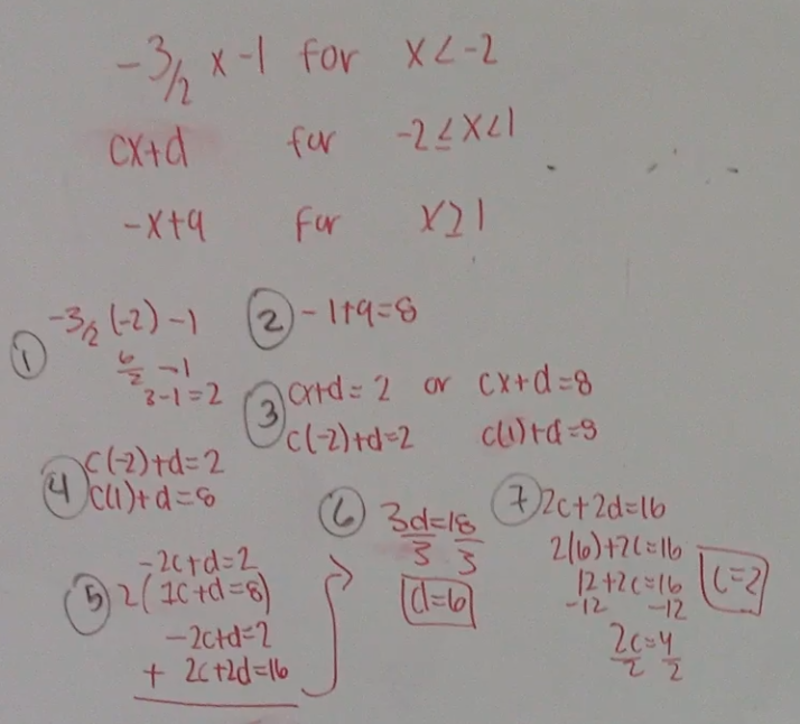 -3/2 x -1 for x < -2
cx+d for -2 ≤ x < 1
-x+9 for x ≥ 1
① -3/2 (-2) -1
6/2 -1
3-1=2
② -1+9=8
③ cx+d=2 or cx+d=8
c(-2)+d=2 c(1)+d=8
④ c(-2)+d=2
c(1)+d=8
⑤ -2c+d=2
2(1c+d=8)
-2c+d=2
+ 2c+2d=16
⑥ 3d=18
3 3
d=6
⑦ 2c+2d=16
2(6)+2c=16
12+2c=16
-12 -12
2c=4
2 2
c=2